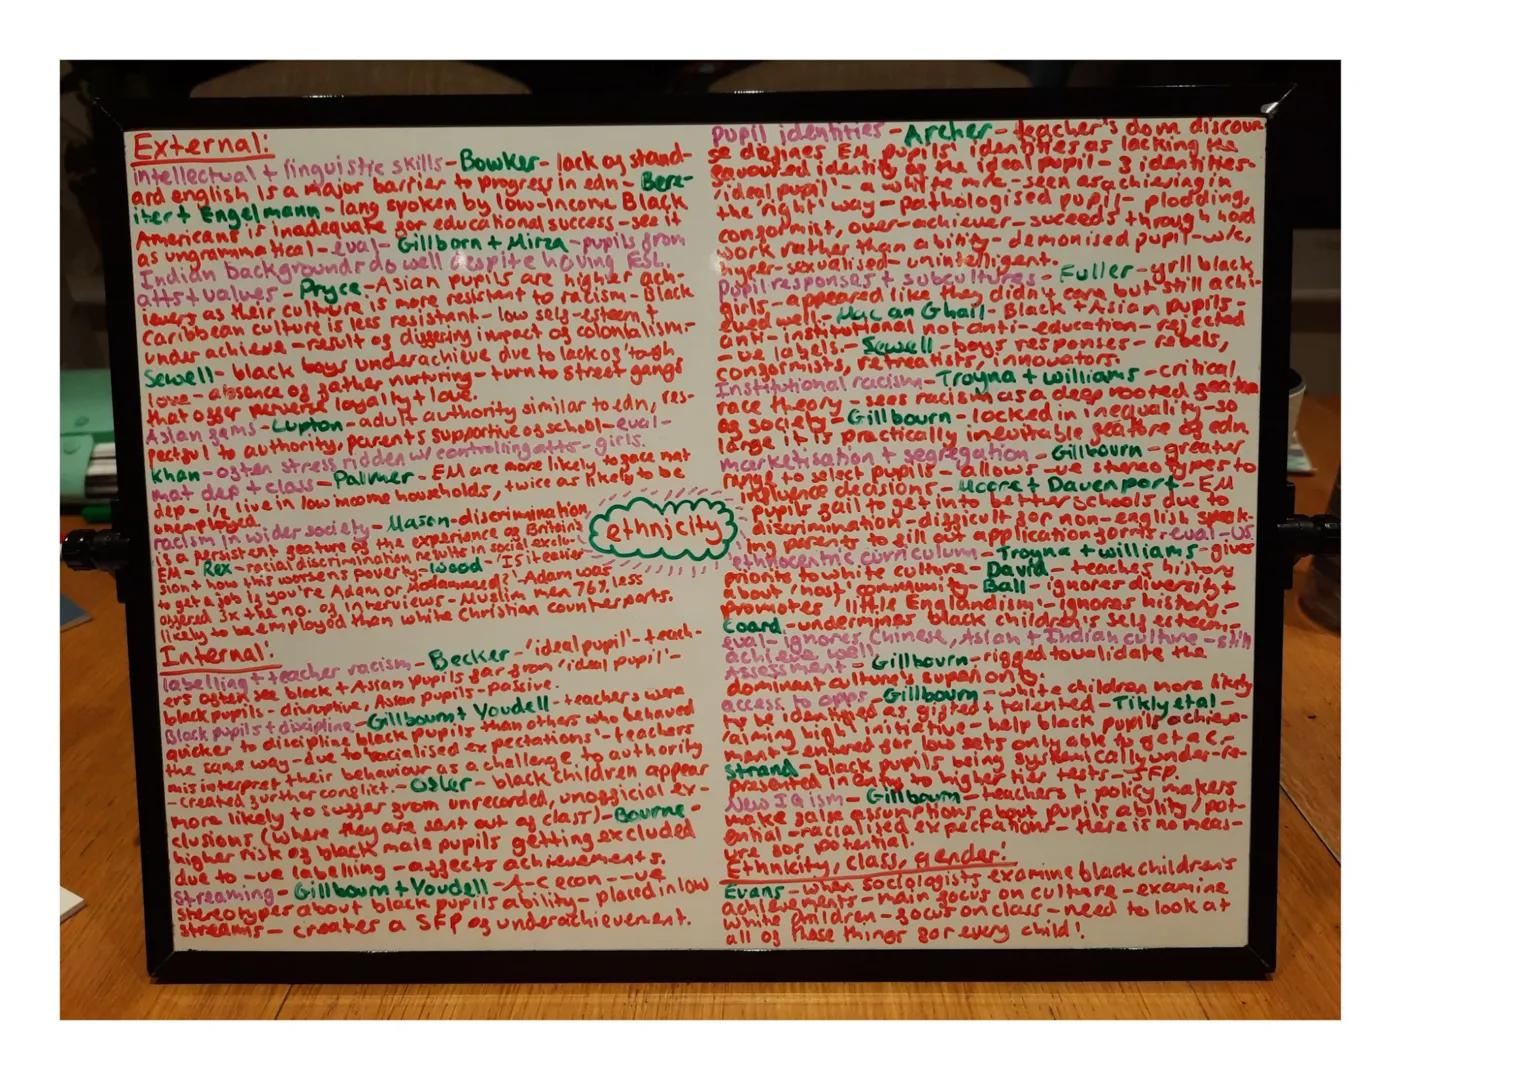 External:
intellectual + linguistic skills - Bowker - lack of stand-
ard english is a major barrier to progress in edn - Bere-
iter + Engelmann - lang spoken by low-income Black
Americans is inadequate for educational success - see it
as ungrammatical - eval - Gillborn + Mirza - pupils from
Indian backgrounds do well despite having ESL.
atts + values - Pryce - Asian pupils are higher ach-
ievers as their culture is more resistant to racism - Black
Caribbean culture is less resistant - low self-esteem +
underachieve - result of differing impact of colonialism -
Sewell - black boys underachieve due to lack of 'tough
love - absence of father nurturing - turn to street gangs
that offer perverse loyalty + love.
Asian fams - Lupton - adult authority similar to edn, res-
pectful to authority, parents supportive of school - eval -
Khan - often stress ridden w/ controlling atts - girls.
mat dep + class - Palmer - EM are more likely to face mat
dep - 1/2 live in low income households, twice as likely to be
unemployed
racism in wider society - Mason - discrimination
is a persistent feature of the experience of Britain's
EM - Rex - racial discrimination results in social exclu-
sion + how this worsens poverty - Wood - 'Is it easier
to get a job if you're Adam or Mohammed?' - Adam was
offered 3x the no. of interviews - Muslim men 76% less
likely to be employed than white Christian counterparts.
Internal:
labelling + teacher racism - Becker - 'ideal pupil' - teach-
ers often see black + Asian pupils far from 'ideal pupil' -
black pupils - disruptive, Asian pupils - passive.
Black pupils + discipline - Gillbourn + Youdell - teachers were
quicker to discipline black pupils than others who behaved
the same way - due to 'racialised expectations' - teachers
misinterpret their behaviour as a challenge to authority
- created further conflict. - Osler - black children appear
more likely to suffer from unrecorded, unofficial ex-
clusions (where they are sent out of class) - Bourne -
higher risk of black male pupils getting excluded
due to -ve labelling - affects achievements.
Streaming - Gillbourn + Youdell - A-C econ - -ve
stereotypes about black pupils ability - placed in low
streams - creates a SFP of underachievement.
ethnicity
Pupil identities - Archer - teacher's dom discour
se defines EM pupils' identities as lacking the
favoured identity of the ideal pupil - 3 identities -
'ideal pupil' - a white m/c - seen as achieving in
the 'right' way - pathologised pupil - plodding,
conformist, over-achiever - suceeds through hard
work rather than ability - demonised pupil - w/c,
hyper-sexualised - unintelligent.
Pupil responses + subcultures - Fuller - yr11 black
girls - appeared like they didn't care but still achi-
eved well - Mac an Ghail - Black + Asian pupils -
anti-institutional not anti-education - rejected
-ve labels. - Sewell - boys responses - rebels,
conformists, retreatists, innovators.
Institutional racism - Troyna + williams - critical
race theory - sees racism as a deep rooted featu
of society - Gillbourn - locked in inequality - so
large it is practically inevitable feature of edn
marketisation + segregation - Gillbourn - greater
range to select pupils - allows -ve stereotypes to
influence decisions - Moore + Davenport - EM
pupils fail to get into better schools due to
discrimination - difficult for non-english speak-
ing parent to fill out application forms - eval - US.
ethnocentric curriculum - Troyna + williams - gives
priority to white culture - David - teaches history
about 'host community' - Ball - ignores diversity +
promotes 'little Englandism' - ignores history. -
Coard - undermines black children's self esteem -
eval - ignores Chinese, Asian + Indian culture - still
achieve well.
Assessment - Gillbourn - rigged to validate the
dominant culture's superiority.
access to opps - Gillbourn - white children more likely
to be identified as gifted + talented - Tikly et al -
'aiming high' initiative - help black pupils achieve-
ment - entered for low sets only able to get a C -
Strand - black pupils being systemically under-re-
presented in entry to higher tier tests - SFP.
New IQ ism - Gillbourn - teachers + policy makers
make false assumptions about pupils ability/pot-
ential - racialised expectations - there is no meas-
ure for potential.
Ethnicity, class, gender!
Evans - when sociologists examine black children's
achievements - main focus on culture - examine
white children - focus on class - need to look at
all of these things for every child!